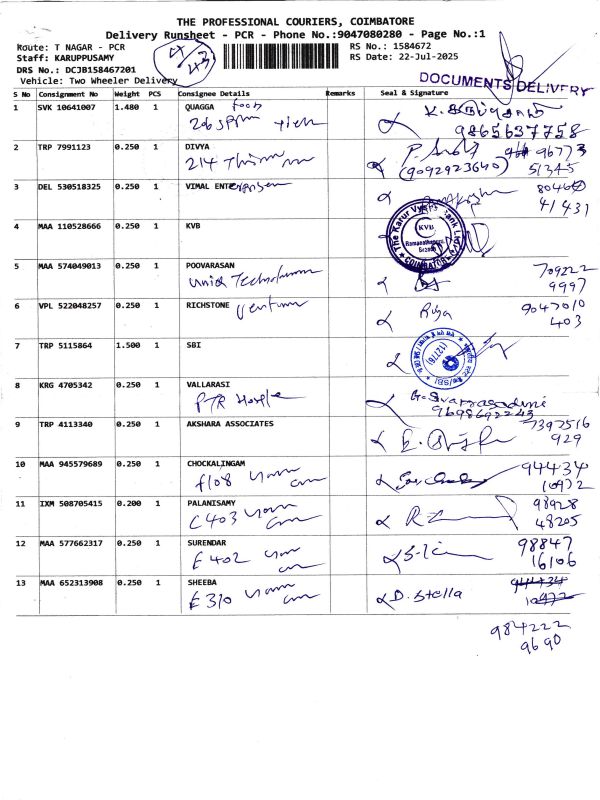 THE PROFESSIONAL COURIERS, COIMBATORE
Delivery Runsheet - PCR - Phone No.:9047080280 - Page No.:1
Route: T NAGAR - PCR RS No.: 1584672
Staff: KARUPPUSAMY RS Date: 22-Jul-2025
DRS No.: DCJB158467201
Vehicle: Two Wheeler Delivery
DOCUMENTS DELIVERY
S No Consignment No Weight PCS Consignee Details Remarks Seal & Signature
1 SVK 10641007 1.480 1 QUAGGA food
9865637758
2 TRP 7991123 0.250 1 DIVYA 96773
214 (9092923640) 51345
3 DEL 530518325 0.250 1 VIMAL ENTERPRISES
41431
4 MAA 110528666 0.250 1 KVB
The Karur Vysya Bank Ltd.
KVB
Ramanathapuram
Branch
COIMBATORE
5 MAA 574049013 0.250 1 POOVARASAN 709222
9997
6 VPL 522048257 0.250 1 RICHSTONE Riya 9047010
403
7 TRP 5115864 1.500 1 SBI
SBI
8 KRG 4705342 0.250 1 VALLARASI
PTR Hospital 9698692243
9 TRP 4113340 0.250 1 AKSHARA ASSOCIATES 7397516
929
10 MAA 945579689 0.250 1 CHOCKALINGAM 94434
F108 10972
11 IXM 508705415 0.200 1 PALANISAMY 98928
C403 48205
12 MAA 577662317 0.250 1 SURENDAR 98847
E402 16106
13 MAA 652313908 0.250 1 SHEEBA D. Stella 944434
E310 10972
984222
9690